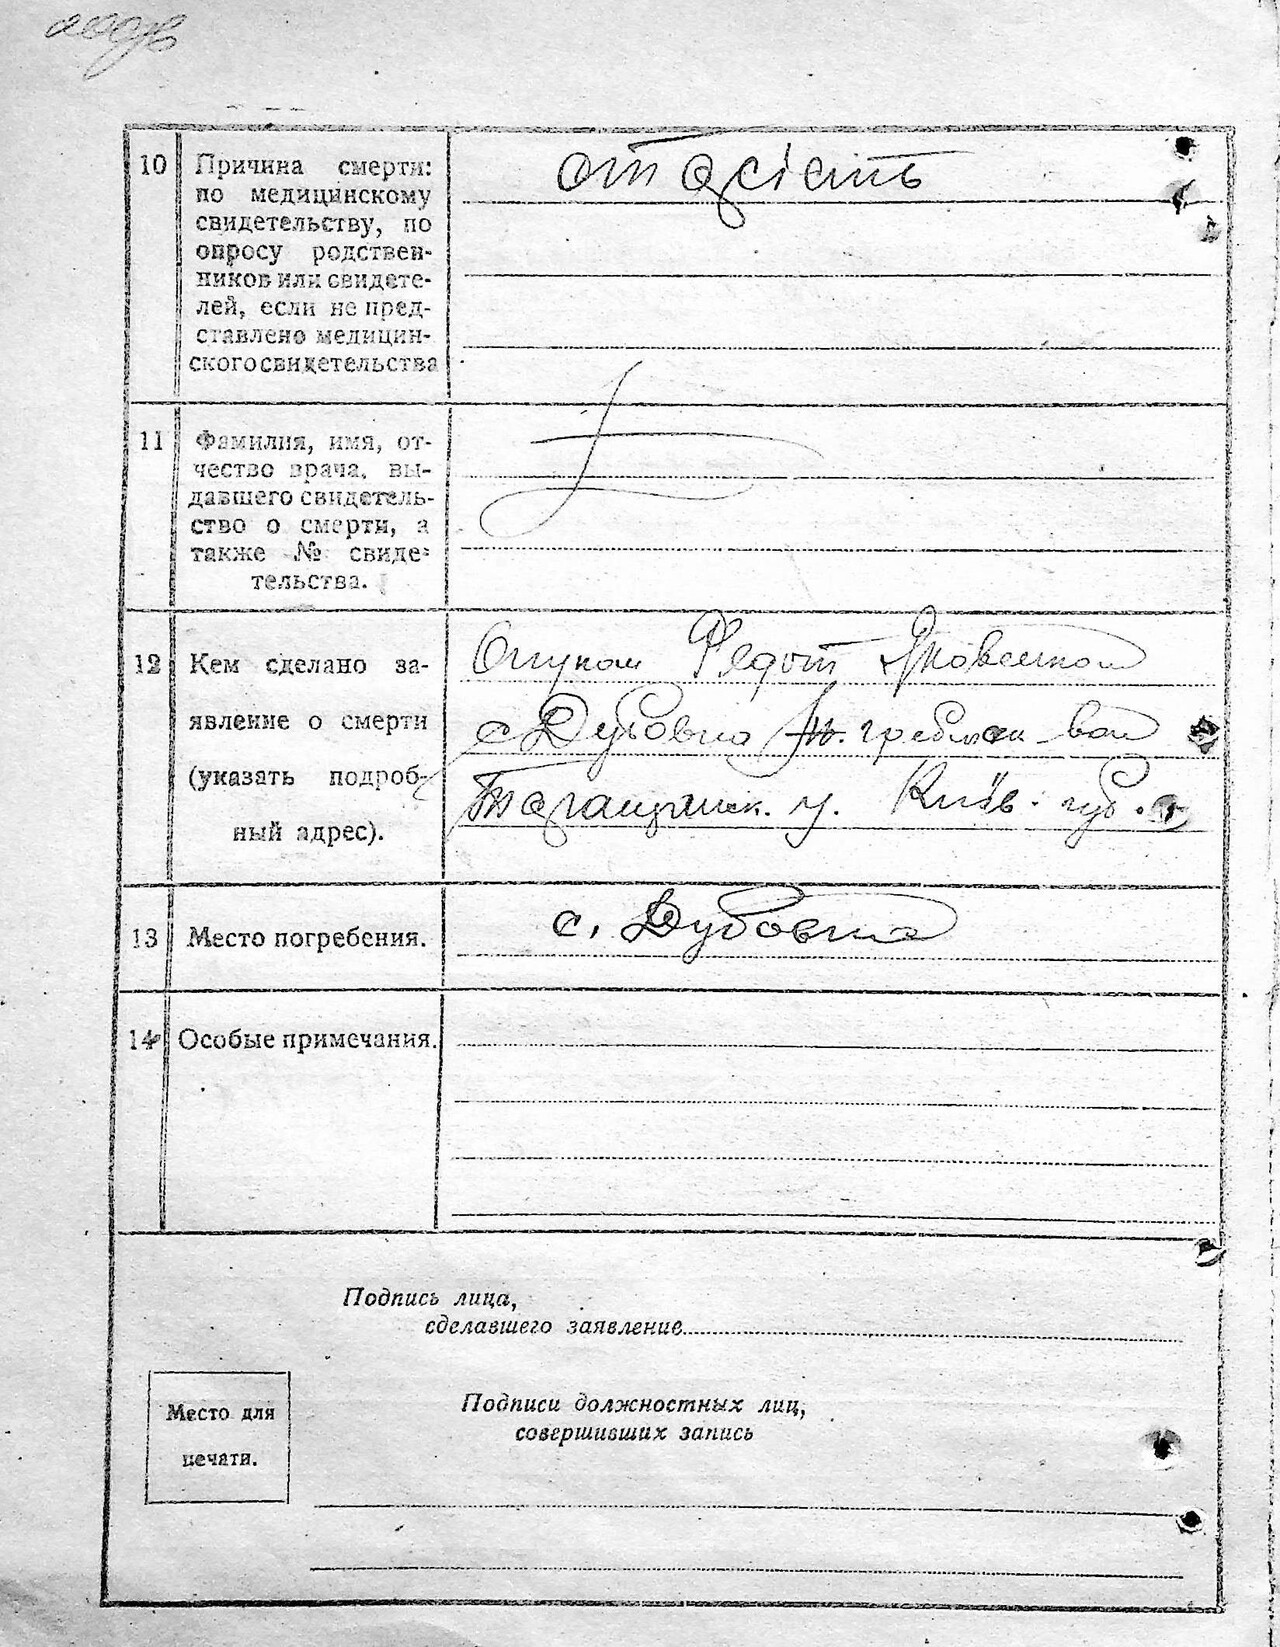 10 Причина смерти:
по медицинскому
свидетельству, по
опросу родствен-
ников или свидете-
лей, если не пред-
ставлено медицин-
ского свидетельства
11 Фамилия, имя, от-
чество врача, вы-
давшего свидетель-
ство о смерти, а
также № свиде-
тельства.
12 Кем сделано за-
явление о смерти
(указать подроб-
ный адрес).
Опуном Федот
с Дубовка вол
Таращанск. у. Київ. губ.
13 Место погребения.
с. Дубовка
14 Особые примечания.
Подпись лица,
сделавшего заявление
Место для
печати.
Подписи должностных лиц,
совершивших запись